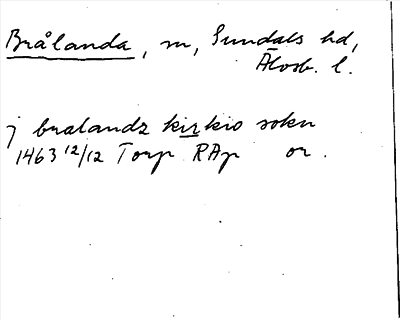 Brålanda, sn, Sundals hd,
Älvsb. l.
j bralandz kirkio sokn
1463 12/12 Torp RAp or.